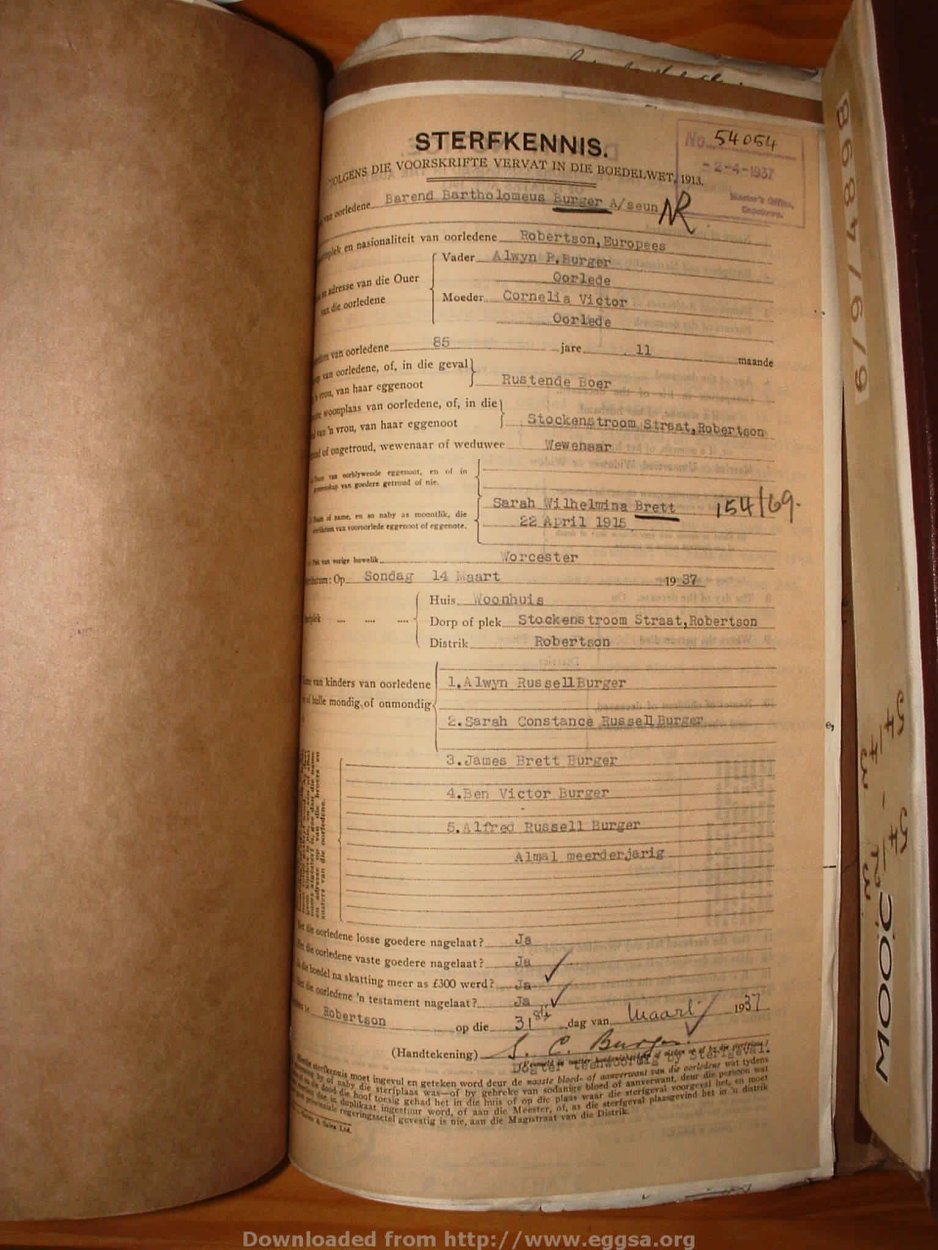 STERFKENNIS.
No. 54054
-2-4-1937
Master's Office,
VOLGENS DIE VOORSKRIFTE VERVAT IN DIE BOEDELWET, 1913.
van oorledene Barend Bartholomeus Burger A/seun NR
en nasionaliteit van oorledene Robertson, Europees
Vader Alwyn P. Burger
en adresse van die Ouer Oorlede
van die oorledene Moeder Cornelia Victor
Oorlede
van oorledene 85 jare 11 maande
van oorledene, of, in die geval
vrou, van haar eggenoot Rustende Boer
woonplaas van oorledene, of, in die
van 'n vrou, van haar eggenoot Stockenstroom Straat, Robertson
of ongetroud, wewenaar of weduwee Wewenaar
van oorblywende eggenoot, en of in
van goedere getroud of nie.
Sarah Wilhelmina Brett 154/69.
of name, en so naby as moontlik, die
van vooroorlede eggenoot of eggenote. 22 April 1915
van vorige huwelik Worcester
Op Sondag 14 Maart 1937
Huis Woonhuis
Dorp of plek Stockenstroom Straat, Robertson
Distrik Robertson
van kinders van oorledene 1. Alwyn Russell Burger
of hulle mondig of onmondig
2. Sarah Constance Russell Burger
3. James Brett Burger
4. Ben Victor Burger
5. Alfred Russell Burger
Almal meerderjarig
die oorledene losse goedere nagelaat? Ja
die oorledene vaste goedere nagelaat? Ja
die boedel na skatting meer as £300 werd? Ja
die oorledene 'n testament nagelaat? Ja
Robertson op die 31ste dag van Maart 1937
(Handtekening) S. C. Burger.
Dogter teenwoordig by sterfgeval.
sterfkennis moet ingevul en geteken word deur de naaste bloed- of aanverwant van die oorledene wat tydens
of naby die sterfplaas was—of by gebreke van sodanige bloed of aanverwant, deur die persoon wat
die hoof toesig gehad het in die huis of op die plaas waar die sterfgeval voorgeval het, en moet
in duplikaat ingestuur word, of aan die Meester, of, as die sterfgeval plaasgevind het in 'n distrik
regeringssetel gevestig is nie, aan die Magistraat van die Distrik.
6/9/14898
MOOC
Downloaded from http://www.eggsa.org